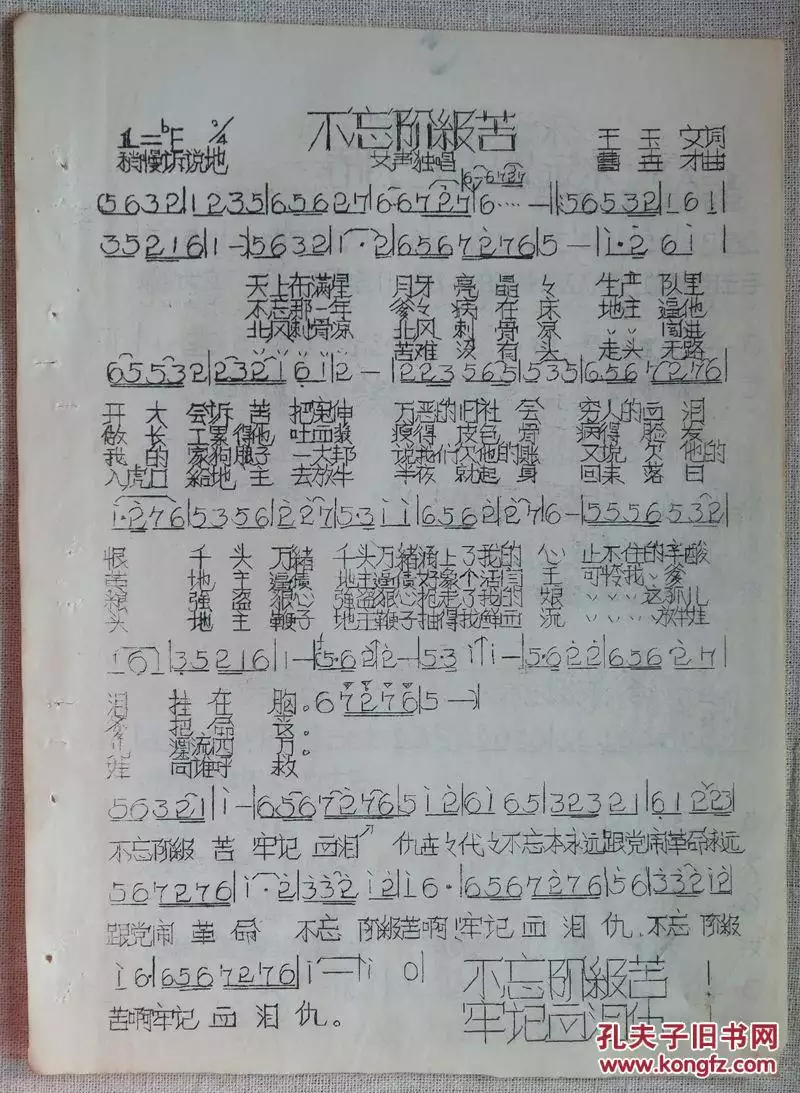 不忘阶級苦
1=bE 2/4 王玉文词
稍慢诉说地 女声独唱 藝垚才曲
(5632|1235|656276|6-6727|6····—|:565321|161|
352161|1—|56321|1·2|6567276|5—|1·261|
天上布滿星 月牙亮晶々 生产队里
不忘那一年 爹々病在床 地主逼他
北风刺骨凉 北风刺骨凉 闯进
苦难没有头 走头无路
65532|232161|2—|223565|535|6567276|
开大会诉苦把冤伸 万恶的旧社会 穷人的血泪
做长工累得他吐血浆 瘦得皮包骨 病得脸发
我的家狗腿子一大邦 说我们欠他的账 又说欠他的
入虎口給地主去放牛 半夜就起身 回来落日
1·276|5356|227|5·311|6562|276—|5556532|
恨 千头万緒 千头万緒涌上了我的心 止不住的辛酸
黄 地主逼债 地主逼债好象活阎王 可怜我爹
粮 强盗狠心 强盗狠心抢走了我的娘 这孤儿
头 地主鞭子 地主鞭子抽得我鲜血流 放牛娃
161|352161|1—|5·622—|5·311—|5·622|656276|
泪挂在胸。67276|5—|
爹把命丧。
儿漂流西方。
娃向谁呼救
56321|1—|6567276|512|6165|32321|61223|
不忘阶級苦 牢记血泪仇 世々代々不忘本永远跟党闹革命永远
5672276|1·2|33212|16·|65672276|56|33212|
跟党闹革命 不忘阶級苦啊牢记血泪仇.不忘阶級
16·|65672276|1—|1 0|
苦啊牢记血泪仇。
不忘阶級苦！
牢记血泪仇
孔夫子旧书网
kongfz.com